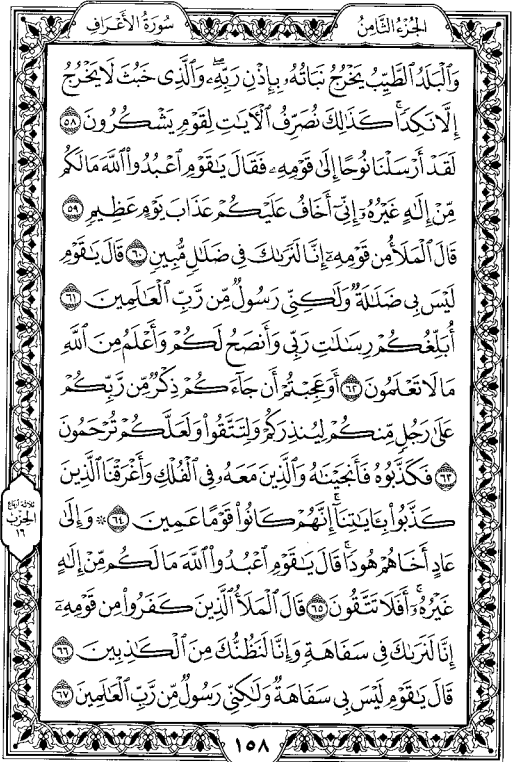 الجزء الثامن
سورة الأعراف
وَٱلْبَلَدُ ٱلطَّيِّبُ يَخْرُجُ نَبَاتُهُۥ بِإِذْنِ رَبِّهِۦۖ وَٱلَّذِى خَبُثَ لَا يَخْرُجُ
إِلَّا نَكِدًاۚ كَذَٰلِكَ نُصَرِّفُ ٱلْأَيَٰتِ لِقَوْمٍ يَشْكُرُونَ ٥٨
لَقَدْ أَرْسَلْنَا نُوحًا إِلَىٰ قَوْمِهِۦ فَقَالَ يَٰقَوْمِ ٱعْبُدُوا۟ ٱللَّهَ مَا لَكُم
مِّنْ إِلَٰهٍ غَيْرُهُۥٓ إِنِّىٓ أَخَافُ عَلَيْكُمْ عَذَابَ يَوْمٍ عَظِيمٍ ٥٩
قَالَ ٱلْمَلَأُ مِن قَوْمِهِۦٓ إِنَّا لَنَرَىٰكَ فِى ضَلَٰلٍ مُّبِينٍ ٦٠ قَالَ يَٰقَوْمِ
لَيْسَ بِى ضَلَٰلَةٌ وَلَٰكِنِّى رَسُولٌ مِّن رَّبِّ ٱلْعَٰلَمِينَ ٦١
أُبَلِّغُكُمْ رِسَٰلَٰتِ رَبِّى وَأَنصَحُ لَكُمْ وَأَعْلَمُ مِنَ ٱللَّهِ
مَا لَا تَعْلَمُونَ ٦٢ أَوَعَجِبْتُمْ أَن جَآءَكُمْ ذِكْرٌ مِّن رَّبِّكُمْ
عَلَىٰ رَجُلٍ مِّنكُمْ لِيُنذِرَكُمْ وَلِتَتَّقُوا۟ وَلَعَلَّكُمْ تُرْحَمُونَ
٦٣ فَكَذَّبُوهُ فَأَنجَيْنَٰهُ وَٱلَّذِينَ مَعَهُۥ فِى ٱلْفُلْكِ وَأَغْرَقْنَا ٱلَّذِينَ
كَذَّبُوا۟ بِـَٔايَٰتِنَآۚ إِنَّهُمْ كَانُوا۟ قَوْمًا عَمِينَ ٦٤ ۞ وَإِلَىٰ
عَادٍ أَخَاهُمْ هُودًاۗ قَالَ يَٰقَوْمِ ٱعْبُدُوا۟ ٱللَّهَ مَا لَكُم مِّنْ إِلَٰهٍ
غَيْرُهُۥٓۚ أَفَلَا تَتَّقُونَ ٦٥ قَالَ ٱلْمَلَأُ ٱلَّذِينَ كَفَرُوا۟ مِن قَوْمِهِۦٓ
إِنَّا لَنَرَىٰكَ فِى سَفَاهَةٍ وَإِنَّا لَنَظُنُّكَ مِنَ ٱلْكَٰذِبِينَ ٦٦
قَالَ يَٰقَوْمِ لَيْسَ بِى سَفَاهَةٌ وَلَٰكِنِّى رَسُولٌ مِّن رَّبِّ ٱلْعَٰلَمِينَ ٦٧
ثلاثة أرباع
الحزب
١٦
١٥٨